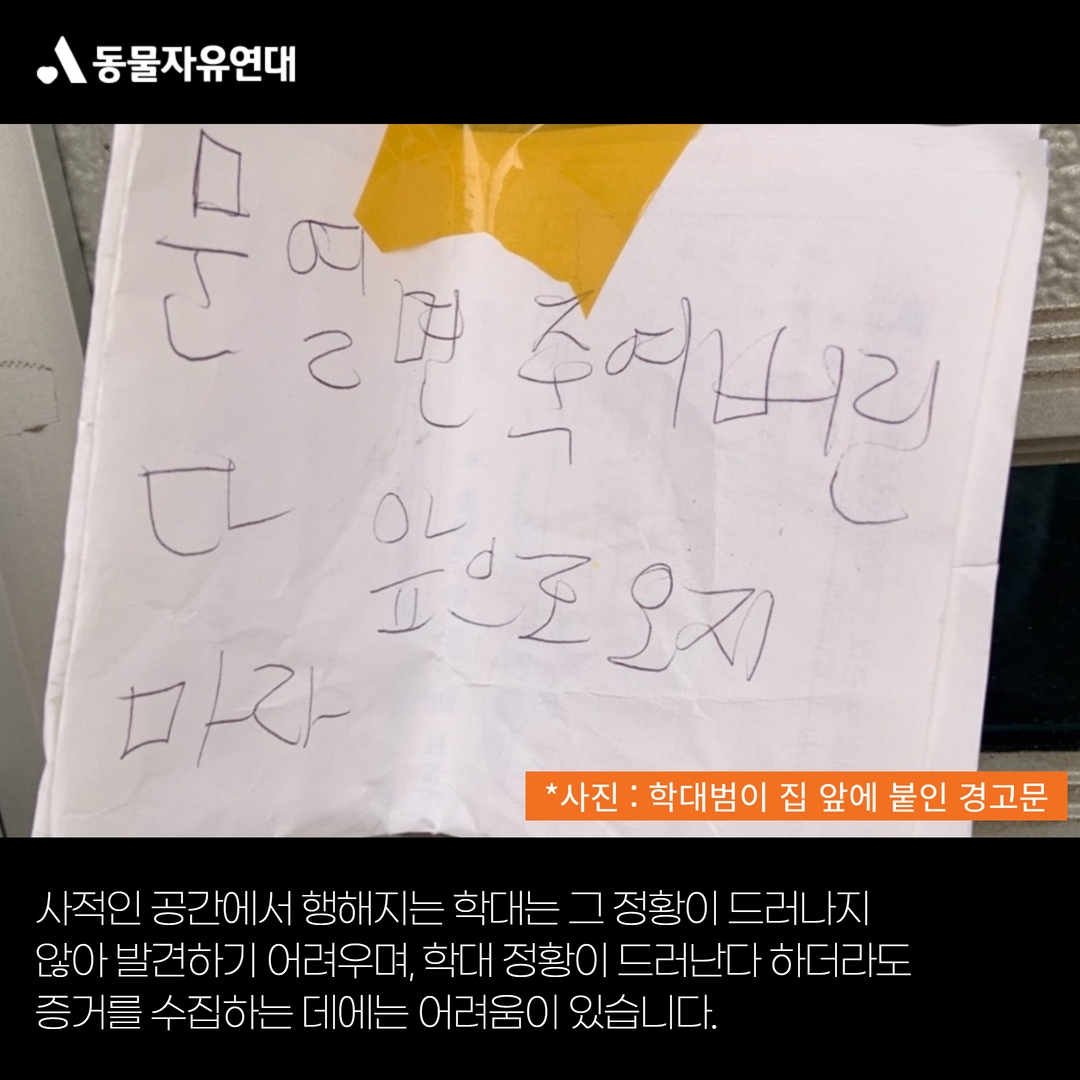 동물자유연대
문열면죽여버린
다 앞으로오지
마라
*사진 : 학대범이 집 앞에 붙인 경고문
사적인 공간에서 행해지는 학대는 그 정황이 드러나지
않아 발견하기 어려우며, 학대 정황이 드러난다 하더라도
증거를 수집하는 데에는 어려움이 있습니다.